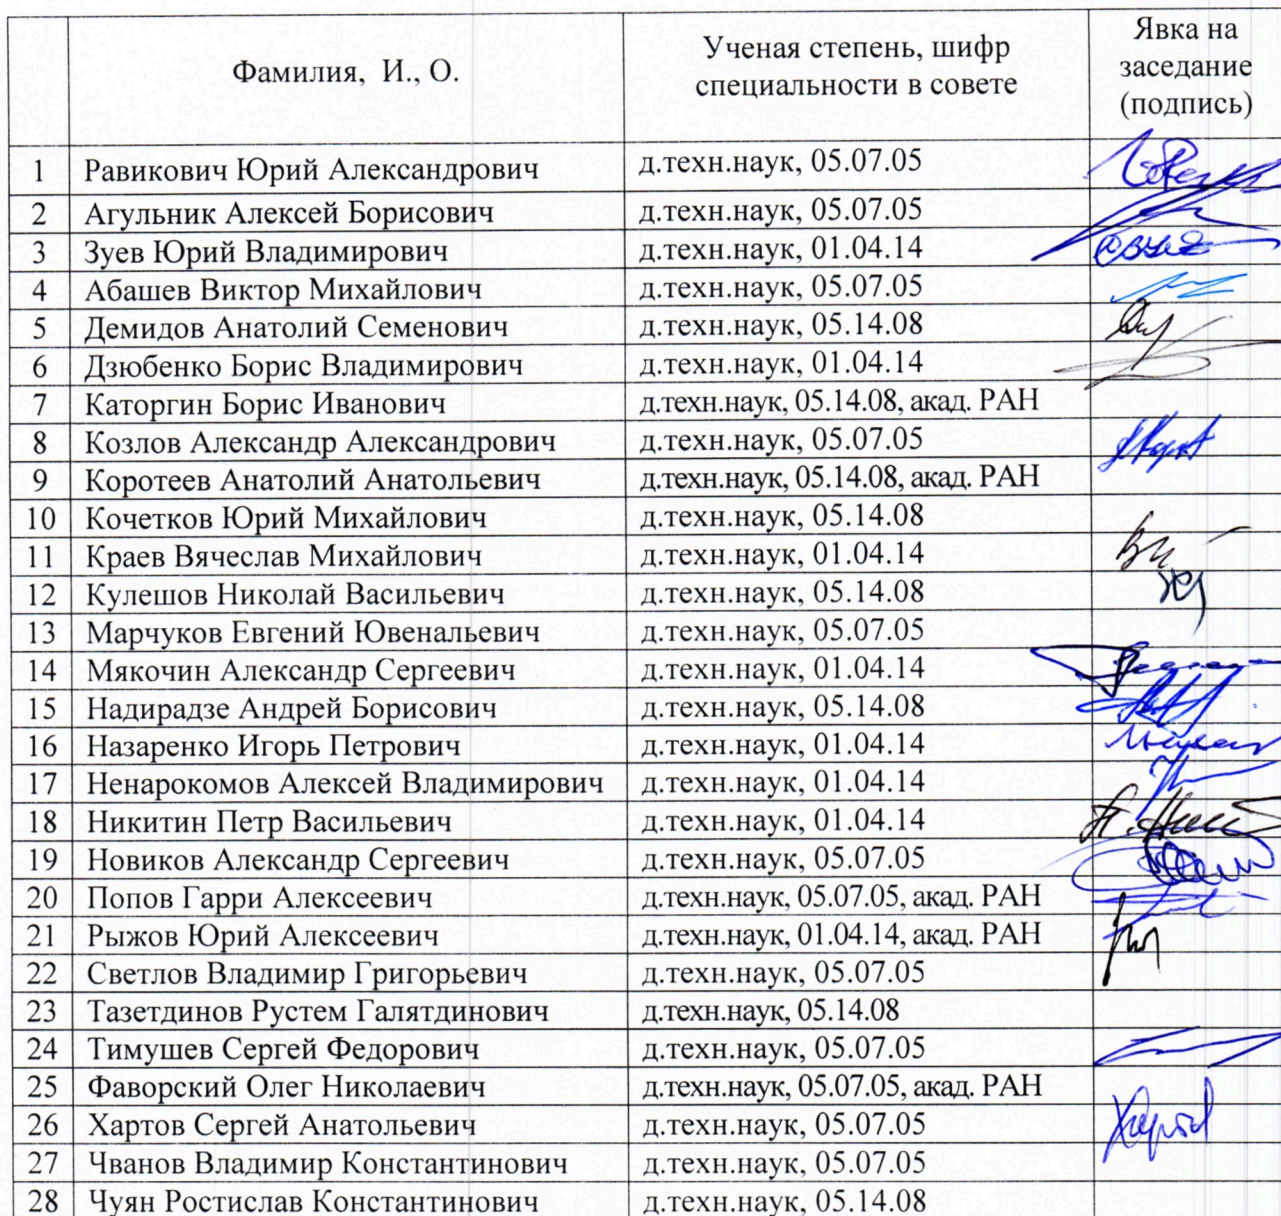 Фамилия, И., О. Ученая степень, шифр специальности в совете Явка на заседание (подпись)
1 Равикович Юрий Александрович д.техн.наук, 05.07.05
2 Агульник Алексей Борисович д.техн.наук, 05.07.05
3 Зуев Юрий Владимирович д.техн.наук, 01.04.14
4 Абашев Виктор Михайлович д.техн.наук, 05.07.05
5 Демидов Анатолий Семенович д.техн.наук, 05.14.08
6 Дзюбенко Борис Владимирович д.техн.наук, 01.04.14
7 Каторгин Борис Иванович д.техн.наук, 05.14.08, акад. РАН
8 Козлов Александр Александрович д.техн.наук, 05.07.05
9 Коротеев Анатолий Анатольевич д.техн.наук, 05.14.08, акад. РАН
10 Кочетков Юрий Михайлович д.техн.наук, 05.14.08
11 Краев Вячеслав Михайлович д.техн.наук, 01.04.14
12 Кулешов Николай Васильевич д.техн.наук, 05.14.08
13 Марчуков Евгений Ювенальевич д.техн.наук, 05.07.05
14 Мякочин Александр Сергеевич д.техн.наук, 01.04.14
15 Надирадзе Андрей Борисович д.техн.наук, 05.14.08
16 Назаренко Игорь Петрович д.техн.наук, 01.04.14
17 Ненарокомов Алексей Владимирович д.техн.наук, 01.04.14
18 Никитин Петр Васильевич д.техн.наук, 01.04.14
19 Новиков Александр Сергеевич д.техн.наук, 05.07.05
20 Попов Гарри Алексеевич д.техн.наук, 05.07.05, акад. РАН
21 Рыжов Юрий Алексеевич д.техн.наук, 01.04.14, акад. РАН
22 Светлов Владимир Григорьевич д.техн.наук, 05.07.05
23 Тазетдинов Рустем Галятдинович д.техн.наук, 05.14.08
24 Тимушев Сергей Федорович д.техн.наук, 05.07.05
25 Фаворский Олег Николаевич д.техн.наук, 05.07.05, акад. РАН
26 Хартов Сергей Анатольевич д.техн.наук, 05.07.05
27 Чванов Владимир Константинович д.техн.наук, 05.07.05
28 Чуян Ростислав Константинович д.техн.наук, 05.14.08